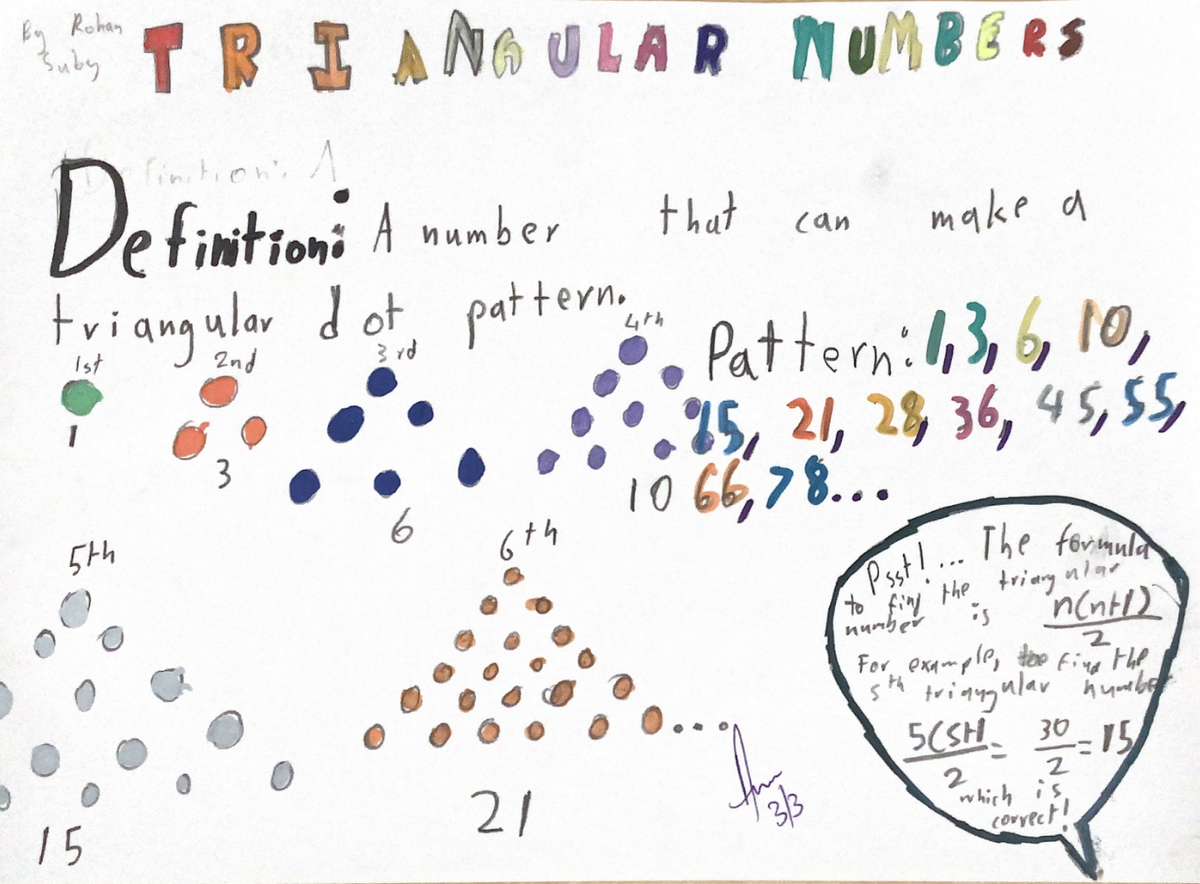 By Rohan
Suby
TRIANGULAR NUMBERS
Definition: A
Definition: A number that can make a
triangular dot pattern.
1st
2nd
3rd
4th
1
3
6
10
Pattern: 1, 3, 6, 10,
15, 21, 28, 36, 45, 55,
66, 78...
5th
6th
15
21
...
3/3
Psst!... The formula
to find the triangular
number is n(n+1)
2
For example, to find the
5th triangular number
5(5+1 = 30 = 15
2 2
which is
correct!